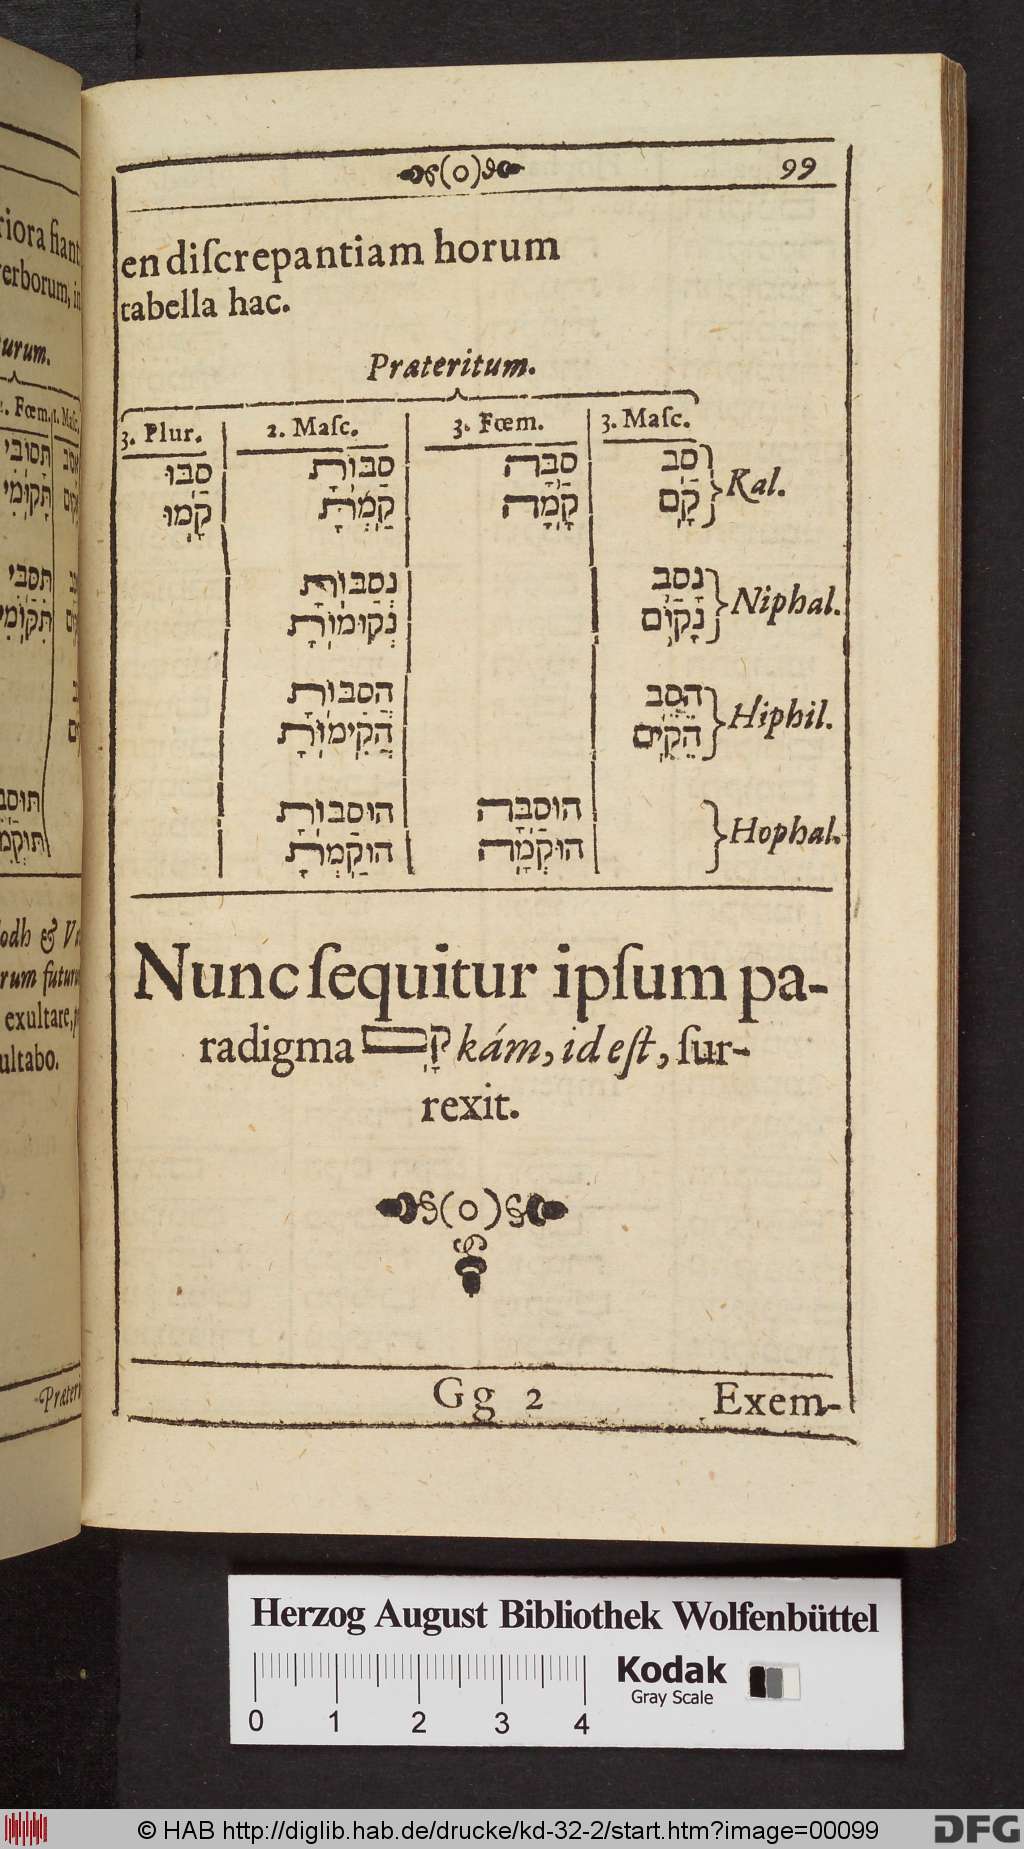 99
en diſcrepantiam horum
tabella hac.
Præteritum.
3. Plur. 2. Maſc. 3. Fœm. 3. Maſc.
סַבּוּ סַבּוֹתָ סַבָּה סַב Kal.
קָמוּ קַמְתָּ קָמָה קָם
נְסַבּוֹתָ נָסַב Niphal.
נְקוּמוֹתָ נָקוֹם
הֲסִבּוֹתָ הֵסֵב Hiphil.
הֲקִימוֹתָ הֵקִים
הוּסַבּוֹתָ הוּסַבָּה Hophal.
הוּקַמְתָּ הוּקְמָה
Nunc ſequitur ipſum pa-
radigma קָם kám, id eſt, ſur-
rexit.
Gg 2 Exem-
riora fiant
verborum, in
urum.
2. Fœm. 1. Maſc.
odh & Va
rum futuru
exultare,
ultabo.
Præteri
Herzog August Bibliothek Wolfenbüttel
Kodak
Gray Scale
0 1 2 3 4
© HAB http://diglib.hab.de/drucke/kd-32-2/start.htm?image=00099
DFG